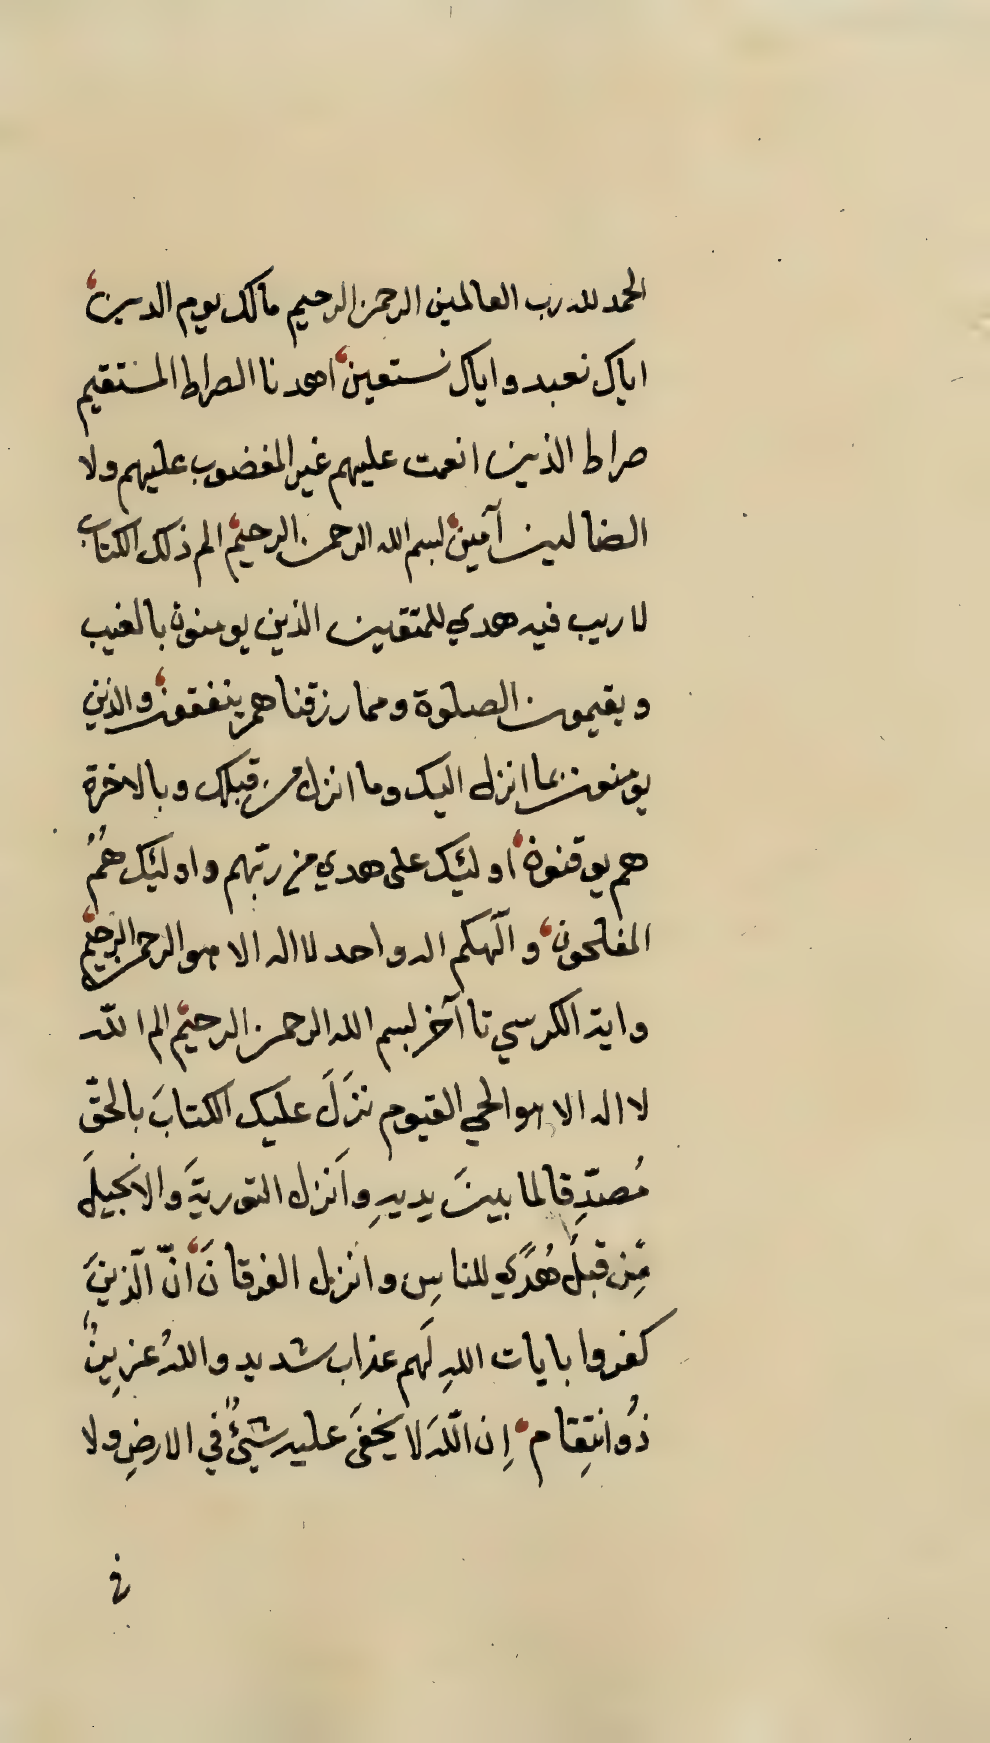 الحمد لله رب العالمين الرحمن الرحيم مالك يوم الدين
اياك نعبد واياك نستعين اهدنا الصراط المستقيم
صراط الذين انعمت عليهم غير المغضوب عليهم ولا
الضالين آمين بسم الله الرحمن الرحيم الم ذلك الكتاب
لا ريب فيه هدي للمتقين الذين يومنون بالغيب
ويقيمون الصلوة ومما رزقناهم ينفقون والذين
يومنون بما انزل اليك وما انزل من قبلك وبالاخرة
هم يوقنون اولئك على هدي من ربّهم واولئك همُ
المفلحون و الٓهكم اله واحد لا اله الا هو الرحمن الرحيم
واية الكرسي تا آخر بسم الله الرحمن الرحيم الم اللّه
لا اله الا هو الحي القيوم نَزَلَ عليك الكتابَ بالحقّ
مُصدّقِا لما بينَ يديهِ واَنزل التوريةَ والانجيلَ
مِّن قبلُ هُدًي للناسِ وانزل الفرقانَ انّ الّذينَ
كفروا بايات اللهِ لَهم عذاب شديد واللهُ عزيزٌ
ذُو انتِقام اِن اللّهَ لا يخفَى عليه شيئٌ في الارضِ ولا
في